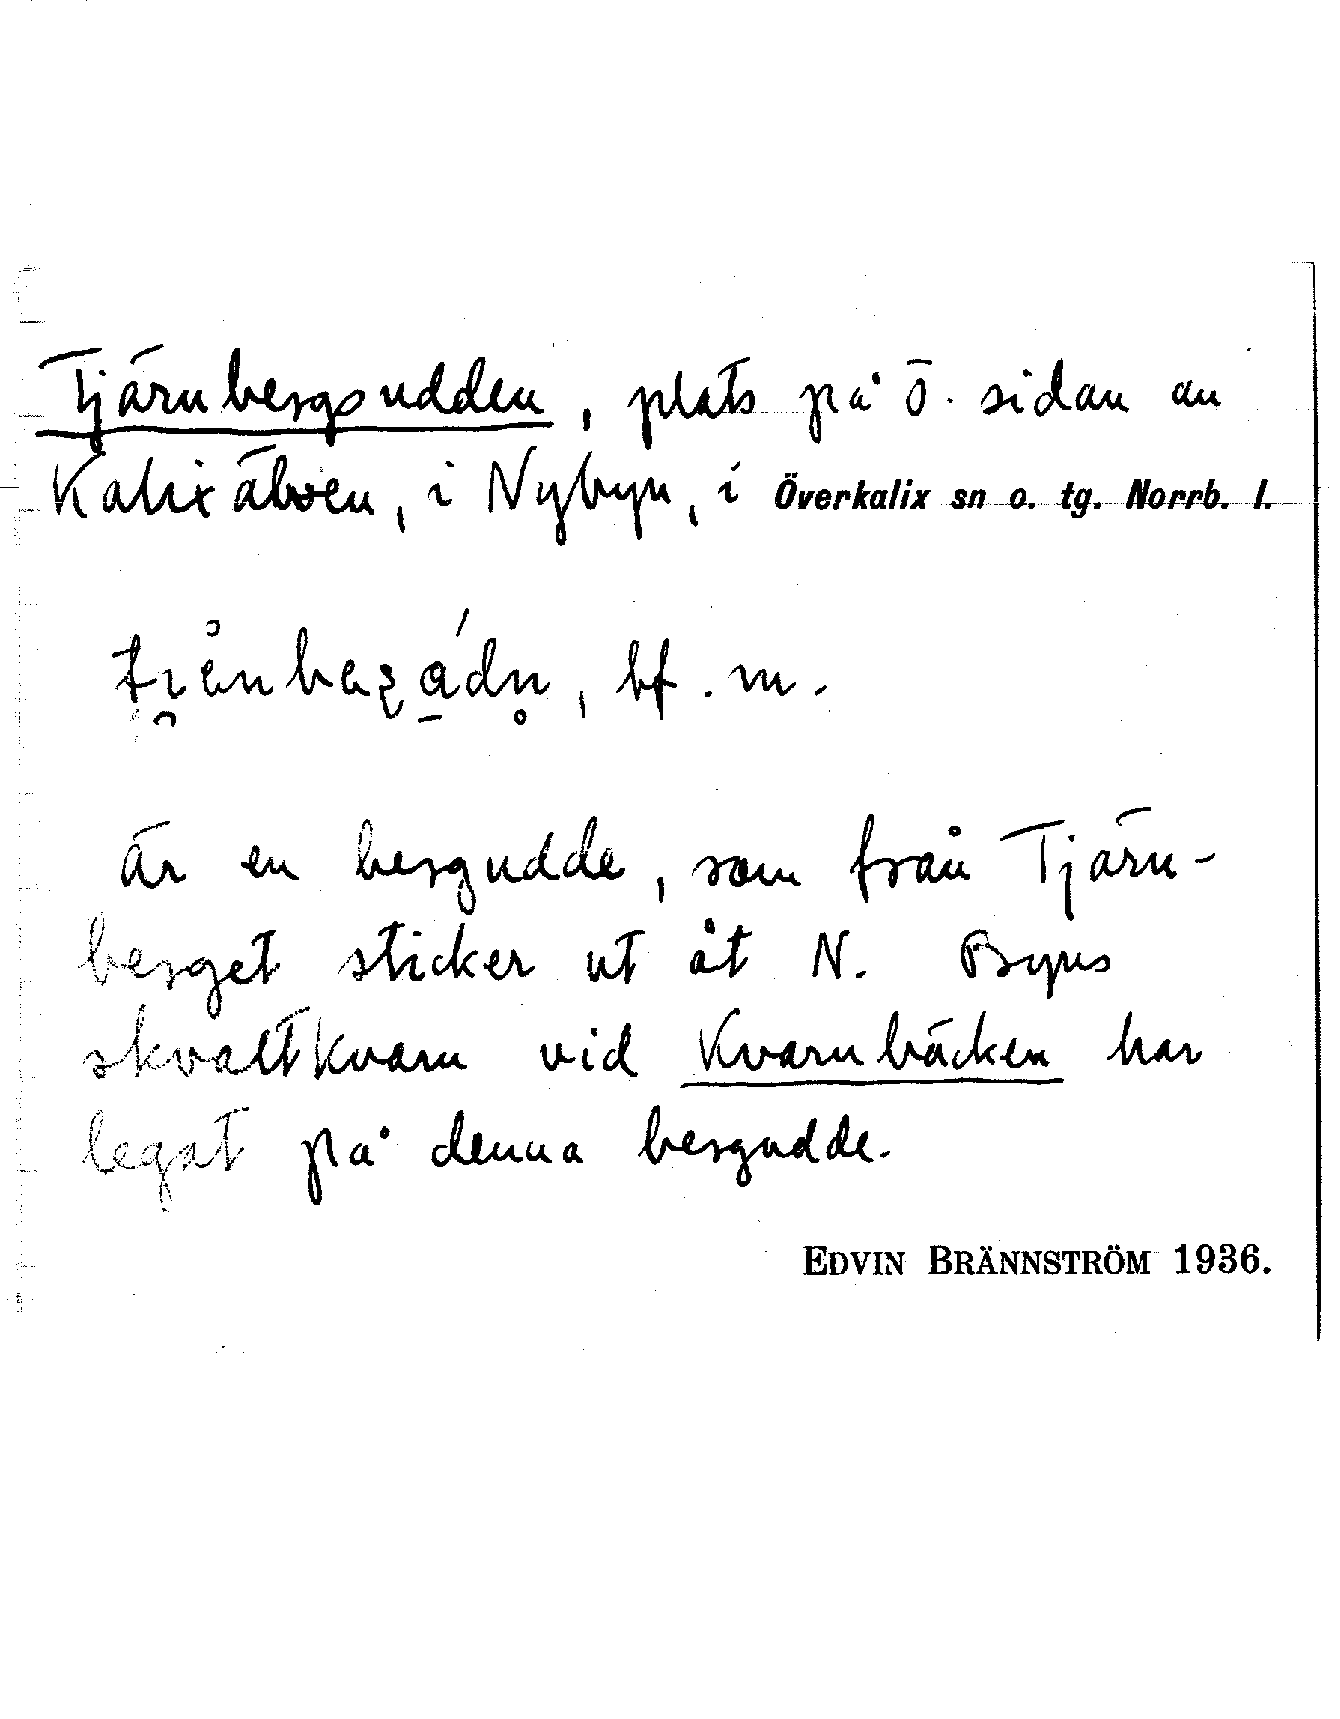 Tjärnbergsudden, plats på ö. sidan av
Kalixälven, i Nybyn, i Överkalix sn o. tg. Norrb. l.
bf. m.
är en bergudde, som från Tjärn-
berget sticker ut åt N. Byns
skvaltkvarn vid Kvarnbäcken har
legat på denna bergudde.
EDVIN BRÄNNSTRÖM 1936.